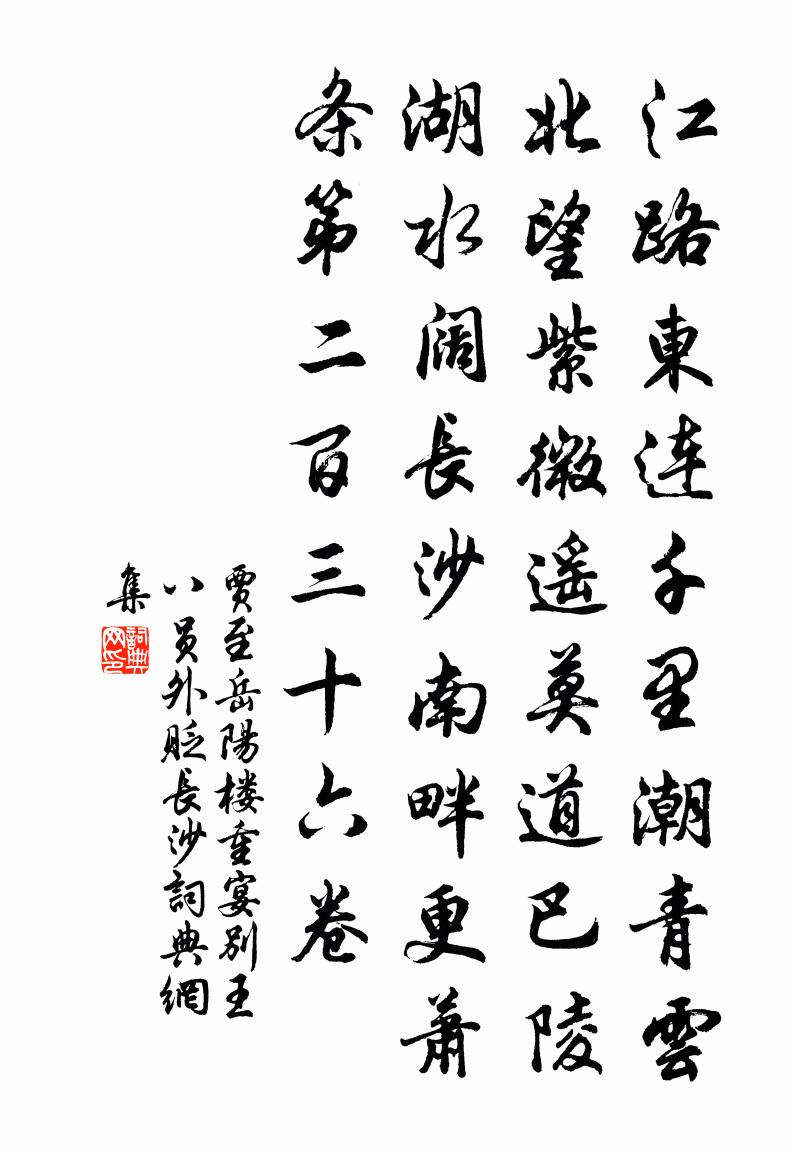 江路東连千里潮青雲
北望紫微遥莫道巴陵
湖水阔長沙南畔更萧
条第二百三十六卷
贾至岳陽楼重宴别王
八員外貶長沙詞典網
集
詞典
网印